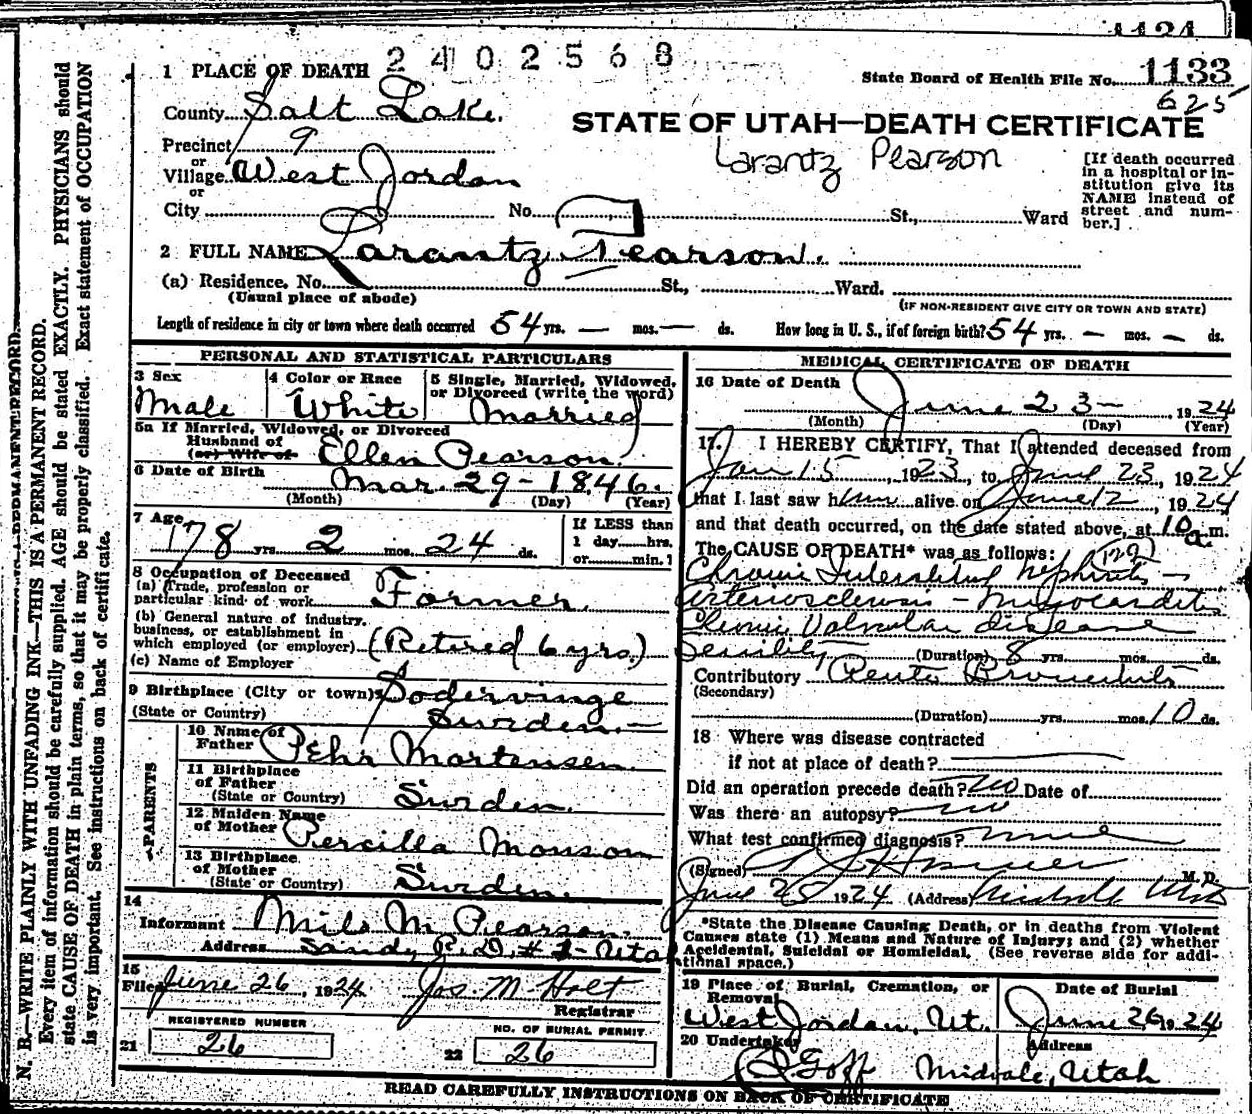 1124
2402568
1 PLACE OF DEATH
State Board of Health File No. 1133
625
County Salt Lake.
STATE OF UTAH—DEATH CERTIFICATE
Larantz Pearson
Precinct 9
or
Village West Jordan
or
City No. St., Ward
[If death occurred
in a hospital or in-
stitution give its
NAME instead of
street and num-
ber.]
2 FULL NAME Larantz Pearson.
(a) Residence. No. St., Ward.
(Usual place of abode)
(IF NON-RESIDENT GIVE CITY OR TOWN AND STATE)
Length of residence in city or town where death occurred 54 yrs. — mos. — ds. How long in U. S., if of foreign birth? 54 yrs. — mos. — ds.
PERSONAL AND STATISTICAL PARTICULARS
3 Sex
Male
4 Color or Race
White
5 Single, Married, Widowed,
or Divorced (write the word)
Married
5a If Married, Widowed, or Divorced
Husband of
(or) Wife of
Ellen Pearson.
6 Date of Birth
Mar. 29 - 1846.
(Month) (Day) (Year)
7 Age
78 yrs. 2 mos. 24 ds.
If LESS than
1 day....hrs.
or....min.?
8 Occupation of Deceased
(a) Trade, profession or
particular kind of work Farmer.
(b) General nature of industry,
business, or establishment in
which employed (or employer) (Retired 6 yrs.)
(c) Name of Employer
9 Birthplace (City or town) Sodervinge
(State or Country) Sweden. —
PARENTS
10 Name of
Father Pehr Mortensen.
11 Birthplace
of Father
(State or Country) Sweden.
12 Maiden Name
of Mother Percilla Monson
13 Birthplace
of Mother
(State or Country) Sweden.
14
Informant Nils M. Pearson.
Address Sandy R. D. # 1 - Utah
15
Filed June 26, 1924 Jos. M. Holt
Registrar
REGISTERED NUMBER
21 26
NO. OF BURIAL PERMIT.
22 26
MEDICAL CERTIFICATE OF DEATH
16 Date of Death
June 23 — , 1924
(Month) (Day) (Year)
17. I HEREBY CERTIFY, That I attended deceased from
Jan 15, 1923, to June 23, 1924
that I last saw him alive on June 12, 1924
and that death occurred, on the date stated above, at 10 a.m.
The CAUSE OF DEATH* was as follows: 129
Chronic Interstitial Nephritis —
Arteriosclerosis - Myocarditis
Chronic Valvular disease
Senility (Duration) 8 yrs. mos. ds.
Contributory Acute Bronchitis
(Secondary)
(Duration) yrs. mos. 10 ds.
18 Where was disease contracted
if not at place of death?
Did an operation precede death? no Date of
Was there an autopsy? no
What test confirmed diagnosis? none
(Signed) M. D.
June 25 1924 (Address) Midvale Utah
*State the Disease Causing Death, or in deaths from Violent
Causes state (1) Means and Nature of Injury; and (2) whether
Accidental, Suicidal or Homicidal. (See reverse side for addi-
tional space.)
19 Place of Burial, Cremation, or
Removal
West Jordan, Ut.
Date of Burial
June 26 1924
20 Undertaker
Goff
Address
Midvale, Utah
READ CAREFULLY INSTRUCTIONS ON BACK OF CERTIFICATE
N. B.—WRITE PLAINLY WITH UNFADING INK—THIS IS A PERMANENT RECORD.
Every item of information should be carefully supplied. AGE should be stated EXACTLY. PHYSICIANS should
state CAUSE OF DEATH in plain terms, so that it may be properly classified. Exact statement of OCCUPATION
is very important. See instructions on back of certificate.